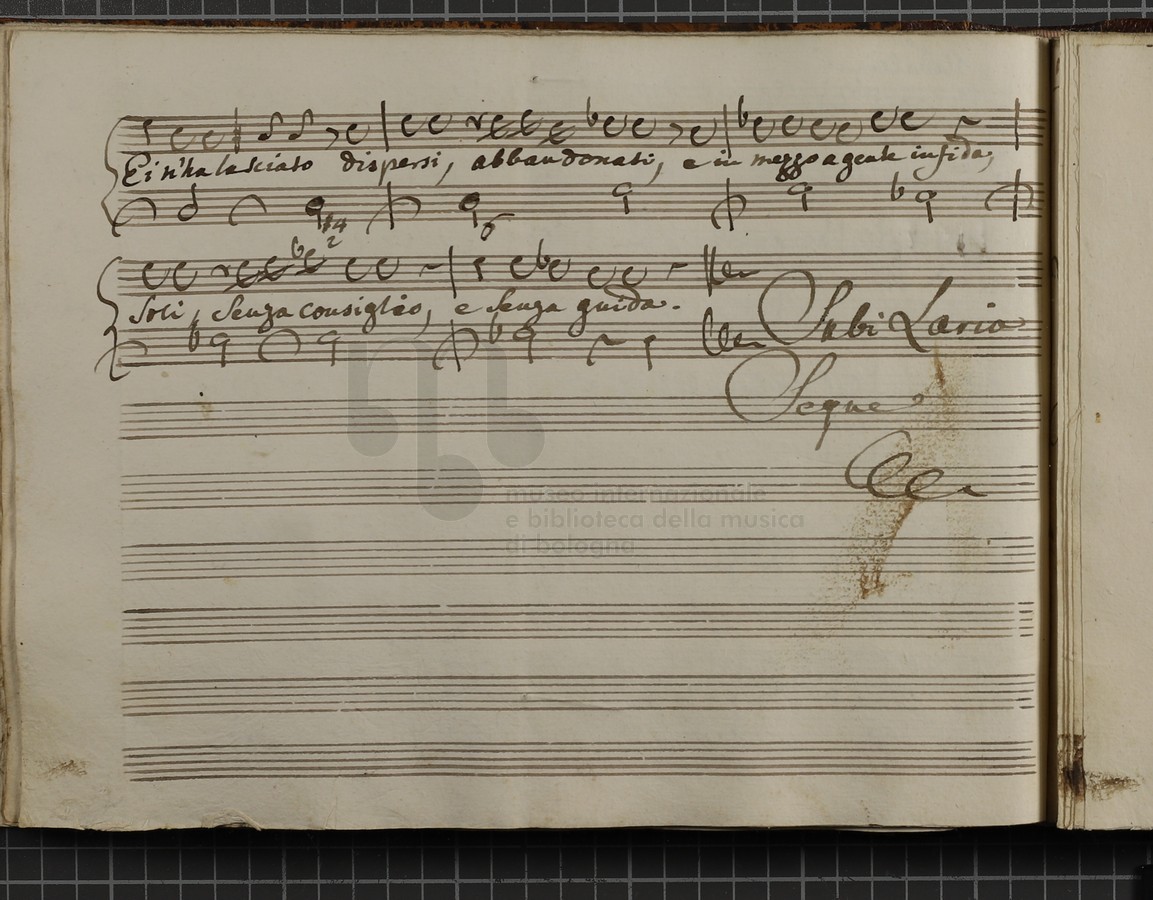 Ei n'ha lasciato dispersi, abbandonati, e in mezzo a gente infida,
#4
2
6
6
Soli, Senza consiglio, e senza guida.
Subi Laria
Segue
museo internazionale
e biblioteca della musica
di bologna